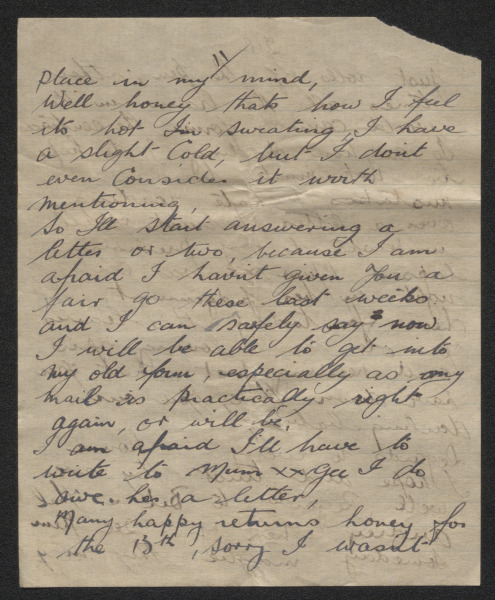 11
place in my mind,
Well honey thats how I feel
its hot Im sweating I have
a slight Cold, but I dont
even Consider it worth
mentioning,
So I'll start answering a
letter or two, because I am
afraid I havnt given you a
fair go these last weeks
and I can safely say now
I will be able to get into
my old form, especially as my
mail is practically right
again, or will be.
I am afraid I'll have to
write to Mum xx Gee I do
owe her a letter,
Many happy returns honey for
the 13th, sorry I wasnt